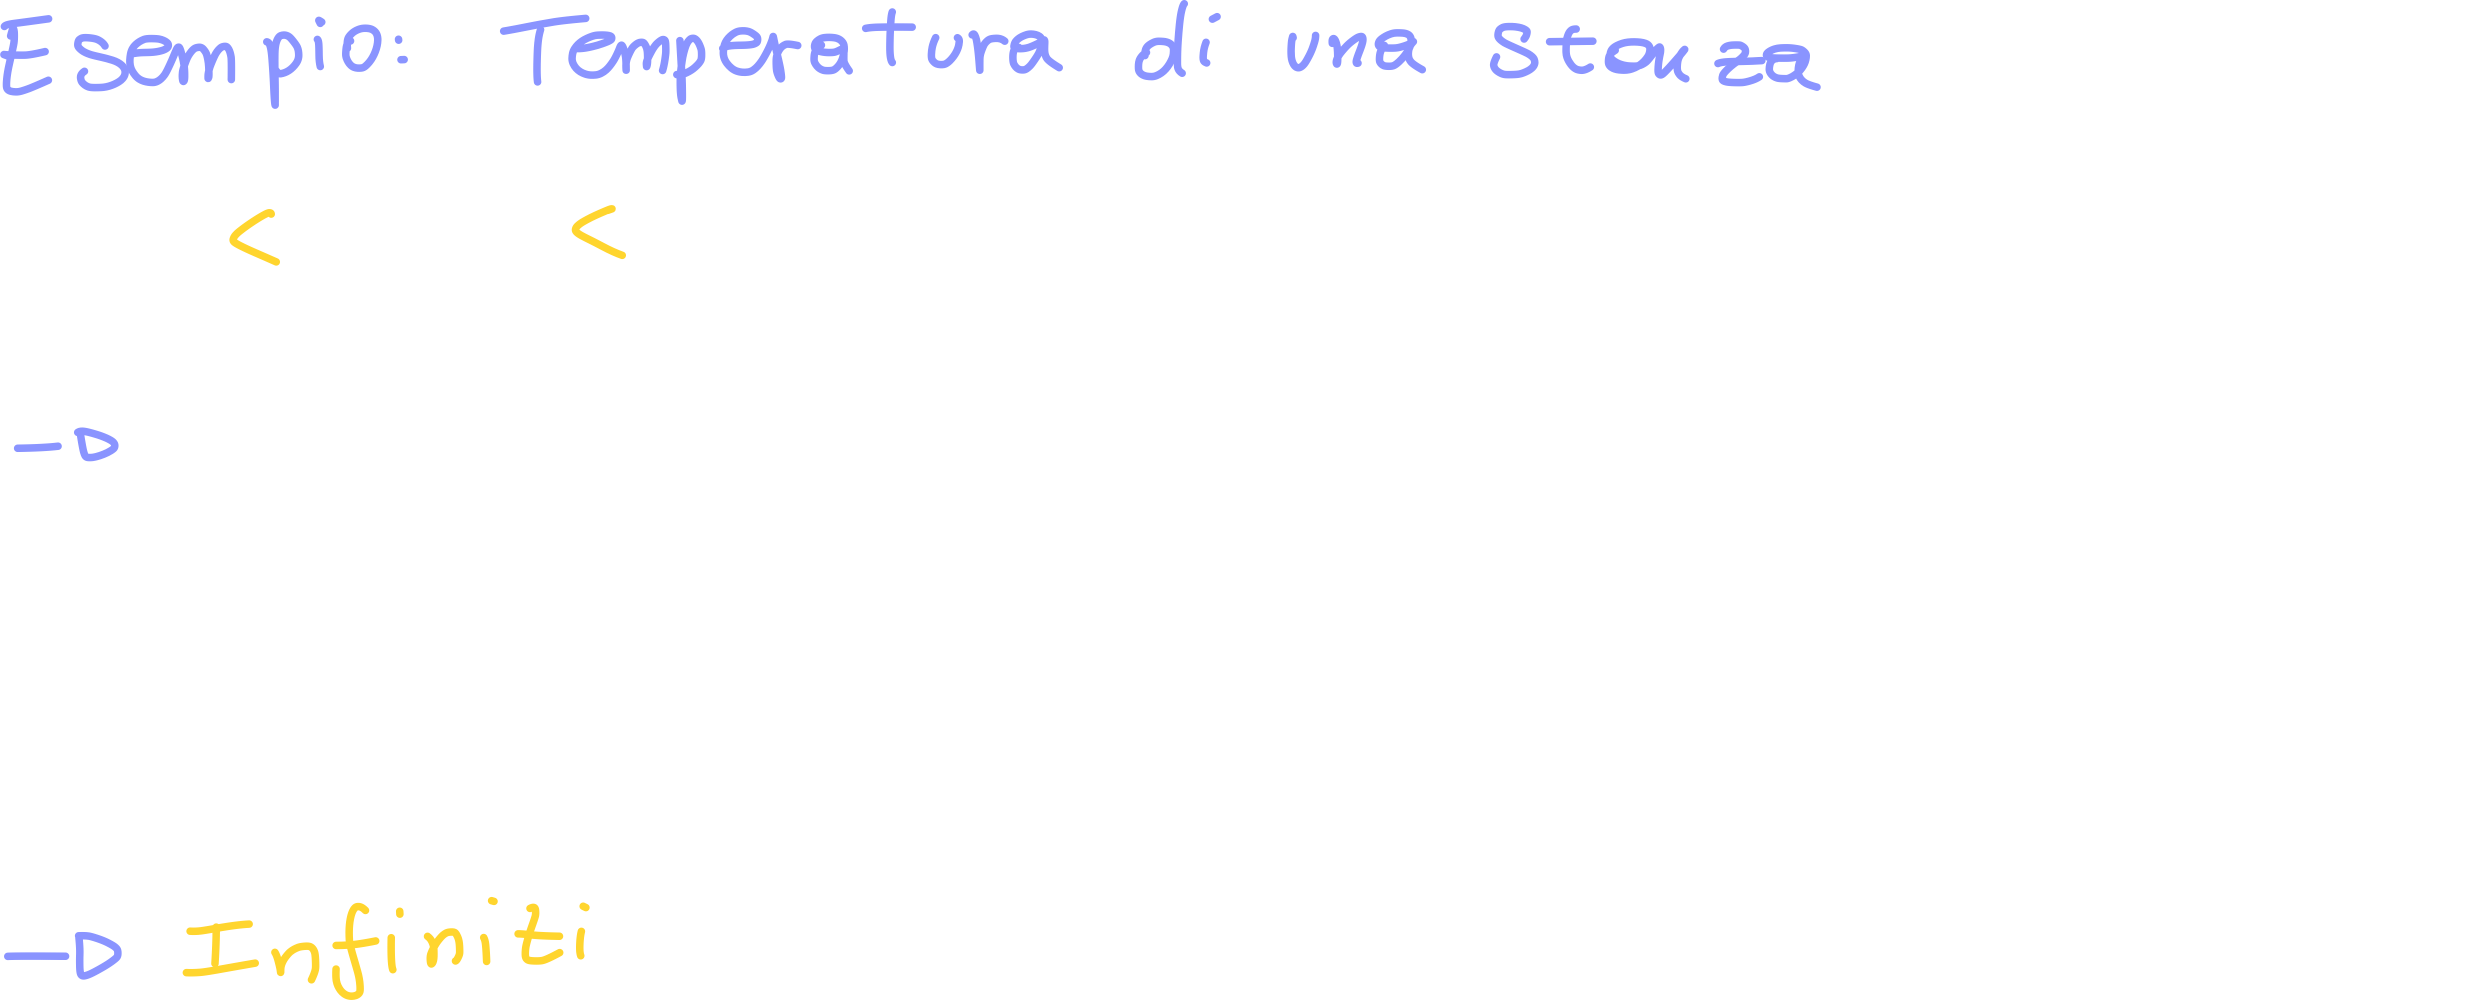 Esempio: Temperatura di una stanza
< <
→
→ Infiniti